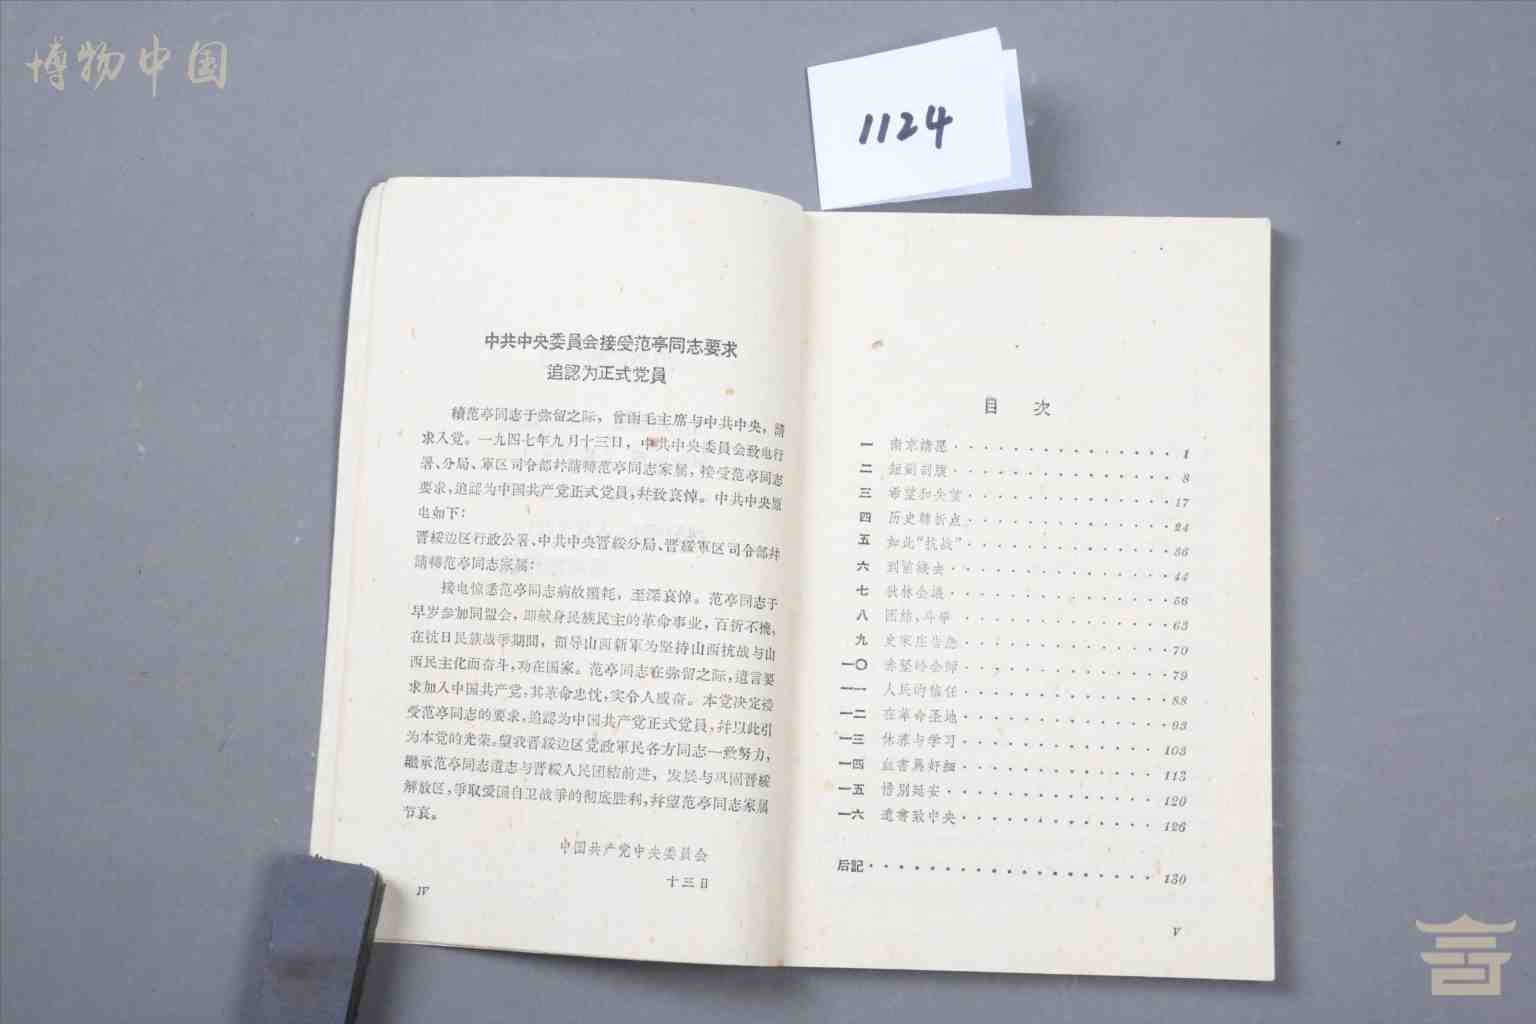 博物中国
1124
中共中央委員会接受范亭同志要求
追認为正式党員
續范亭同志于弥留之际，曾函毛主席与中共中央，請
求入党。一九四七年九月十三日，中共中央委員会致电行
署、分局、軍区司令部幷請轉范亭同志家属，接受范亭同志
要求，追認为中国共产党正式党員，幷致哀悼。中共中央原
电如下：
晋綏边区行政公署、中共中央晋綏分局、晋綏軍区司令部幷
請轉范亭同志家属：
接电惊悉范亭同志病故噩耗，至深哀悼。范亭同志于
早岁参加同盟会，即献身民族民主的革命事业，百折不撓，
在抗日民族战爭期間，领导山西新軍为坚持山西抗战与山
西民主化而奋斗，功在国家。范亭同志在弥留之际，遺言要
求加入中国共产党，其革命忠忱，实令人感奋。本党决定接
受范亭同志的要求，追認为中国共产党正式党員，幷以此引
为本党的光荣。望我晋綏边区党政軍民各方同志一致努力，
繼承范亭同志遺志与晋綏人民团結前进，发展与巩固晋綏
解放区，爭取爱国自卫战爭的彻底胜利，幷望范亭同志家属
节哀。
中国共产党中央委員会
十三日
IV
目 次
一 南京請愿 1
二 短劍剖腹 8
三 希望和失望 17
四 历史轉折点 24
五 如此“抗战” 36
六 到前綫去 44
七 秋林会議 56
八 团結，斗爭 63
九 史家庄告急 70
一〇 赤坚岭会師 79
一一 人民的信任 88
一二 在革命圣地 93
一三 休养与学习 103
一四 血書罵奸細 113
一五 惜別延安 120
一六 遺書致中央 126
后記 130
V